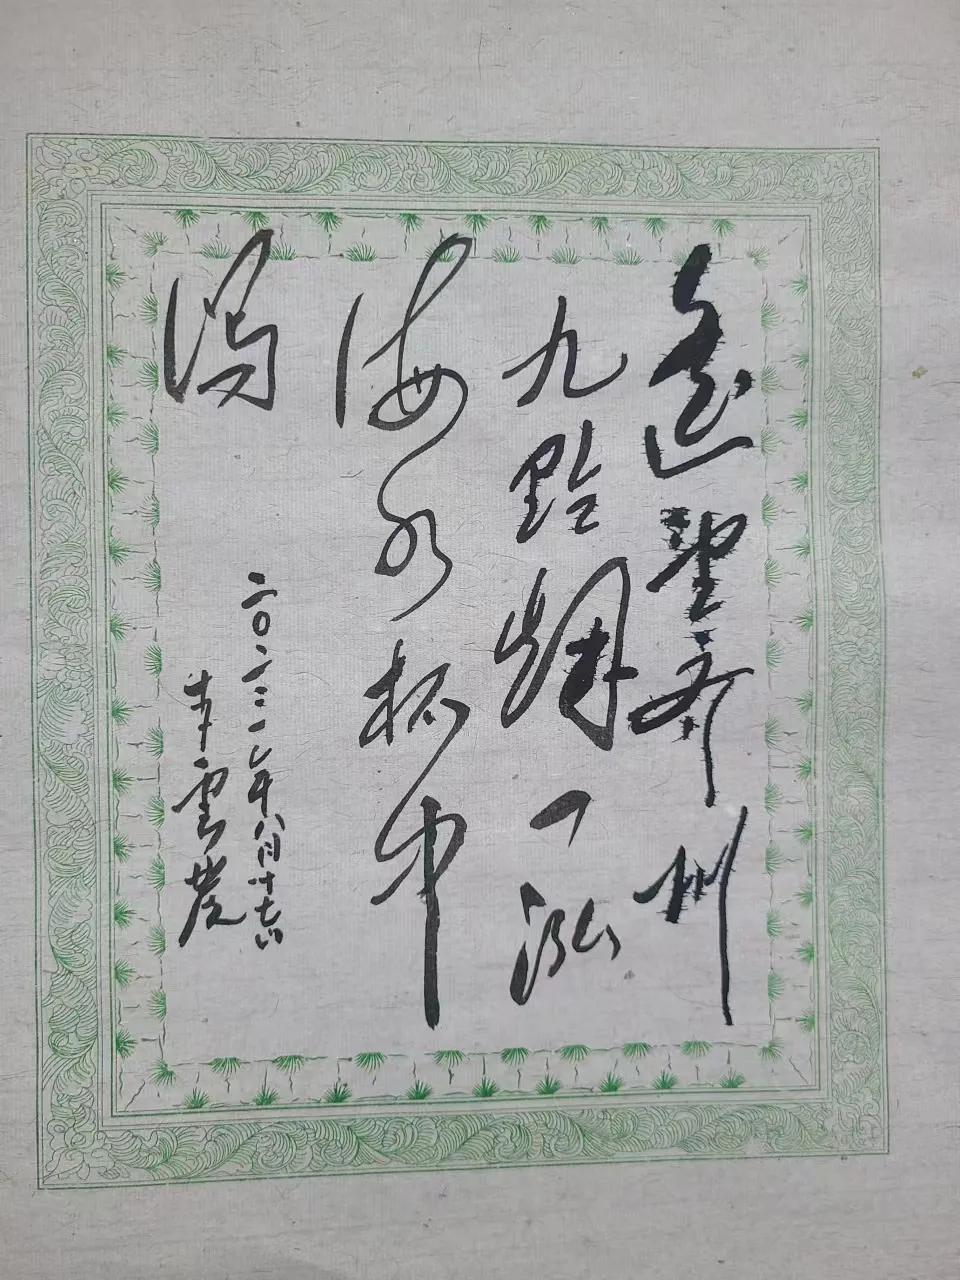 遥望齐州
九點烟一泓
海水杯中
泻
二〇二三年八月十七
雲農